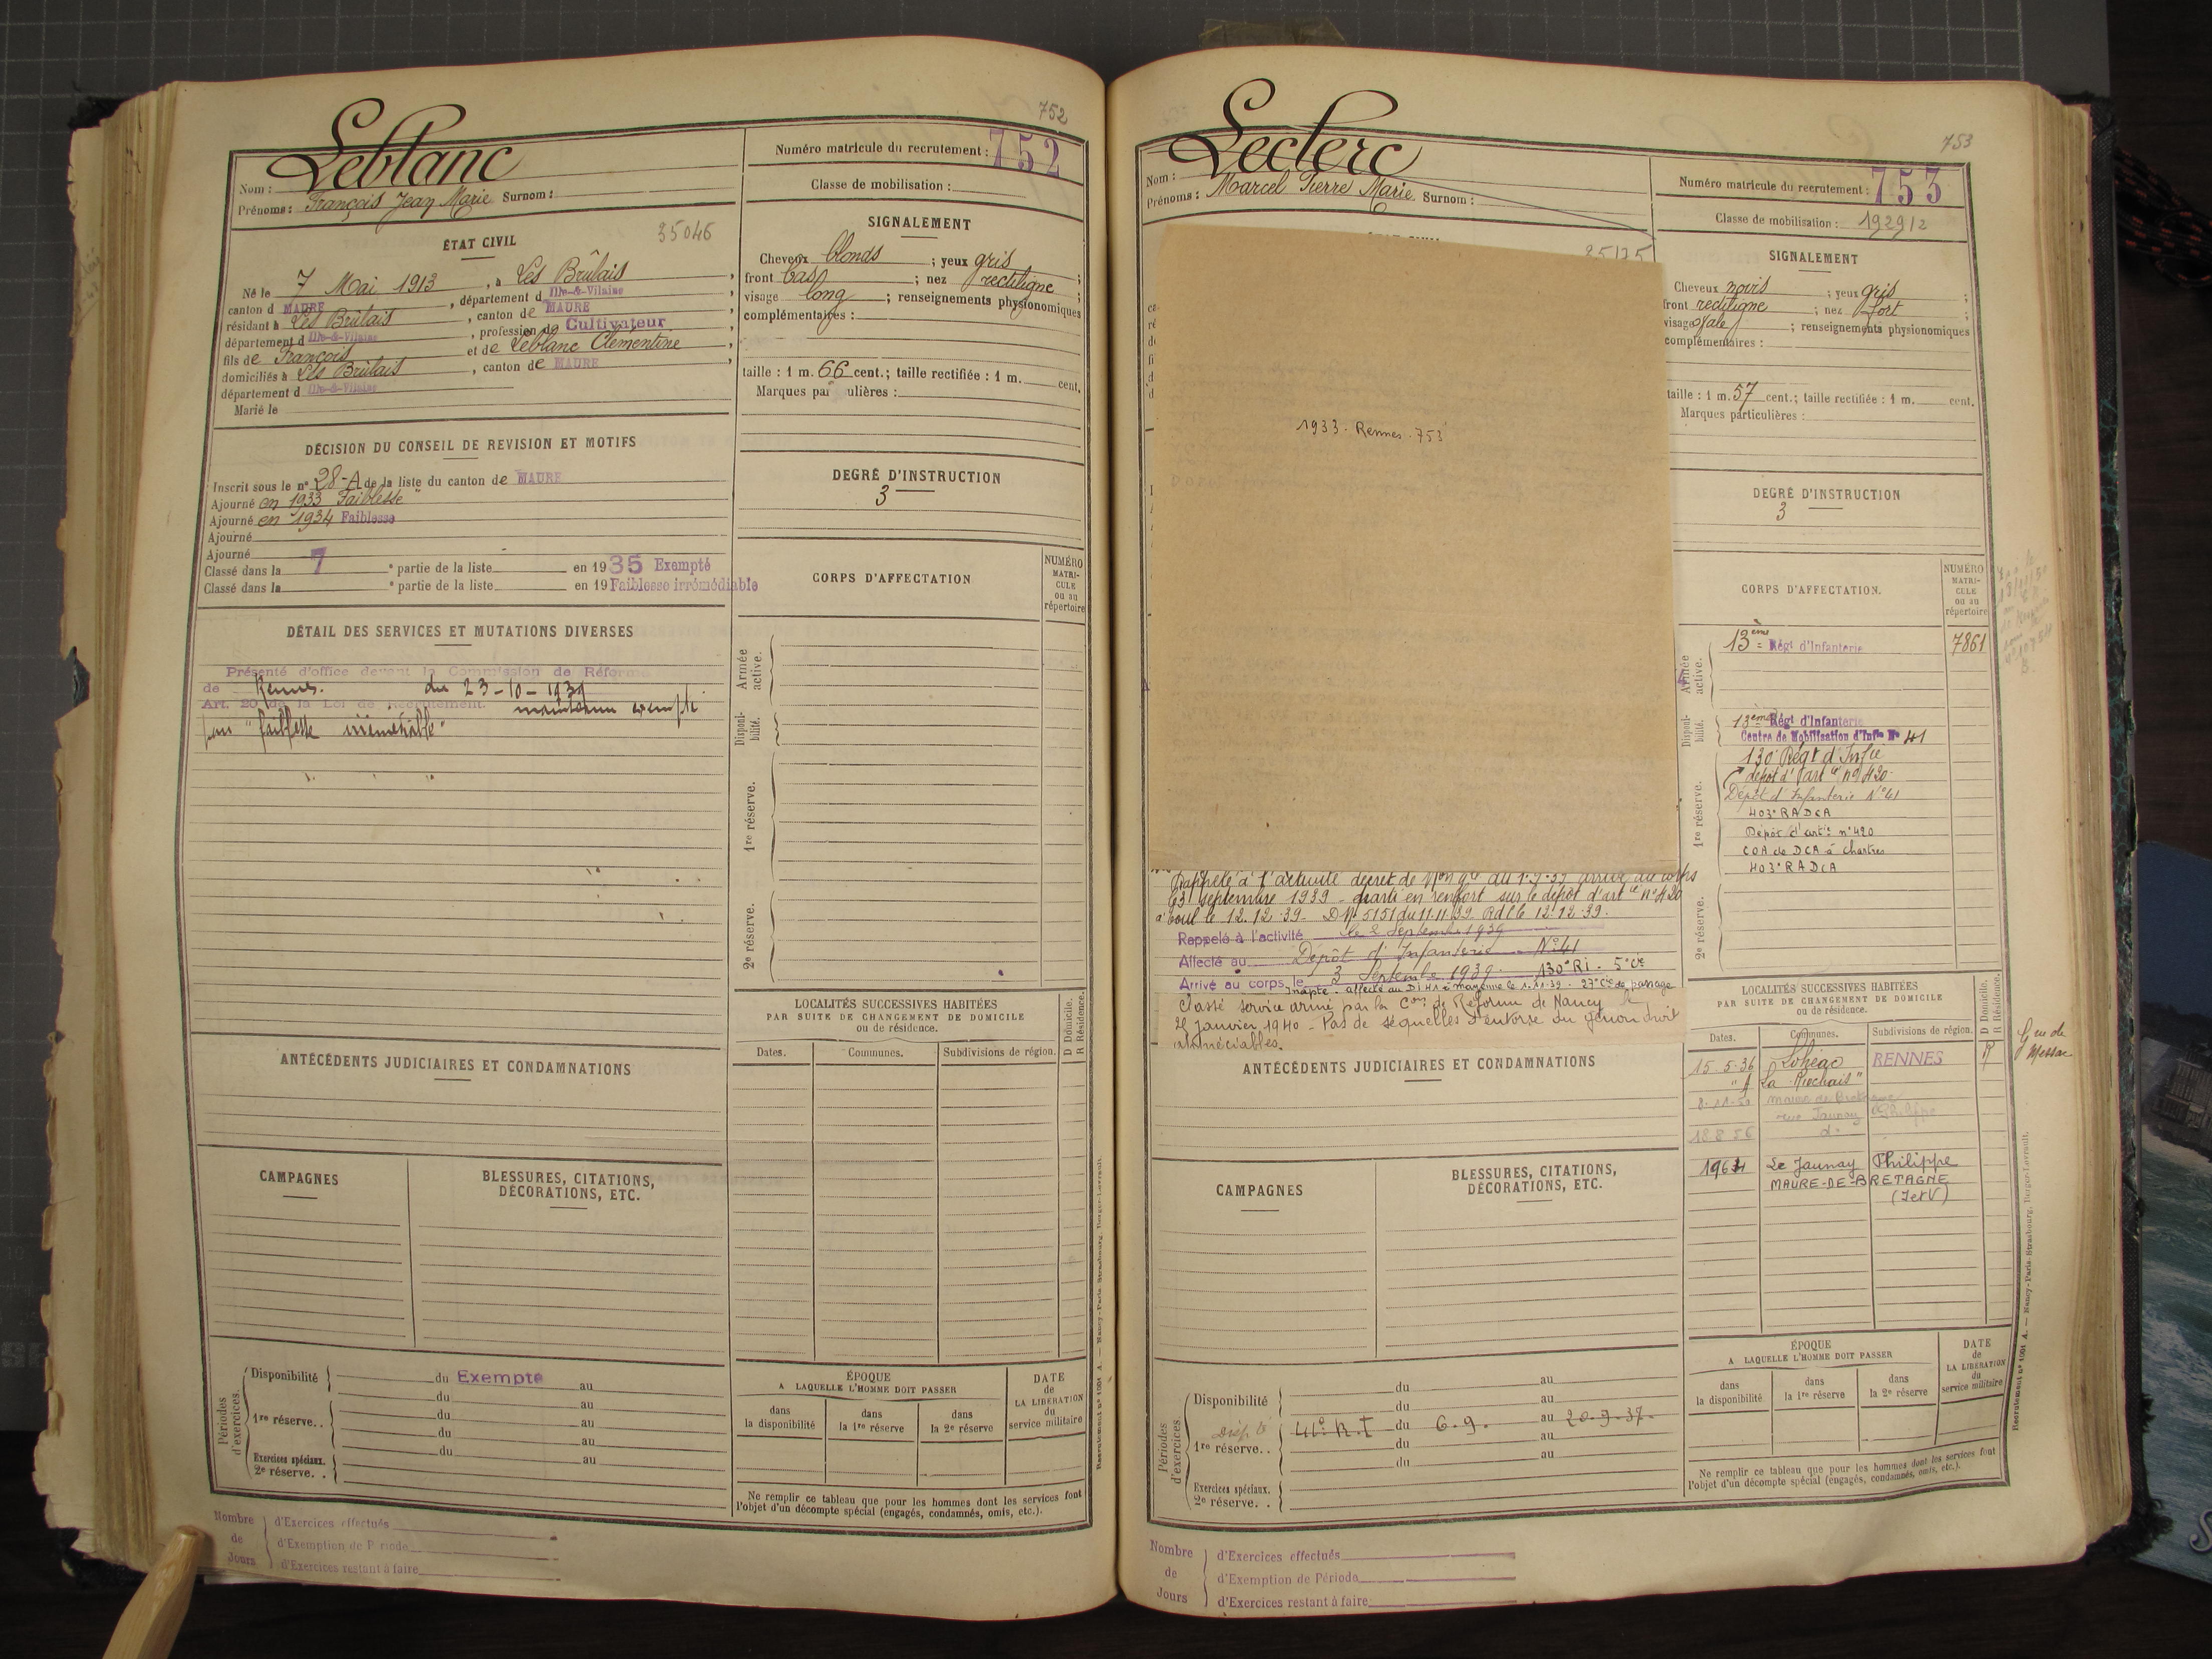 752
Leblanc
Nom :
Prénoms : François Jean Marie Surnom :
Numéro matricule du recrutement : 752
Classe de mobilisation :
ÉTAT CIVIL
35046
Né le 7 Mai 1913, à Les Brûlais,
canton d MAURE, département d Ille-&-Vilaine
résidant à Les Brûlais, canton de MAURE
département d Ille-&-Vilaine, profession de Cultivateur
fils de François et de Leblanc Clémentine,
domiciliés à Les Brûlais, canton de MAURE,
département d Ille-&-Vilaine
Marié le
SIGNALEMENT
Cheveux blonds ; yeux gris ;
front bas ; nez rectiligne ;
visage long ; renseignements physionomiques
complémentaires :
taille : 1 m. 66 cent.; taille rectifiée : 1 m. cent.
Marques par ulières :
DÉCISION DU CONSEIL DE REVISION ET MOTIFS
Inscrit sous le n° 28-A de la liste du canton de MAURE
Ajourné en 1933 Faiblesse
Ajourné en 1934 Faiblesse
Ajourné
Ajourné
Classé dans la 7 e partie de la liste en 1935 Exempté
Classé dans la e partie de la liste en 19 Faiblesse irrémédiable
DEGRÉ D'INSTRUCTION
3
DÉTAIL DES SERVICES ET MUTATIONS DIVERSES
Présenté d'office devant la Commission de Réforme
de Rennes. du 23-10-1939
Art. 20 de la Loi de Recrutement. maintenu exempté
pour "faiblesse irrémédiable"
CORPS D'AFFECTATION
NUMÉRO
MATRI-
CULE
ou au
répertoire
Armée
active.
Disponi-
bilité.
1re réserve.
2e réserve.
LOCALITÉS SUCCESSIVES HABITÉES
PAR SUITE DE CHANGEMENT DE DOMICILE
ou de résidence.
D Domicile.
R Résidence.
Dates. Communes. Subdivisions de région.
ANTÉCÉDENTS JUDICIAIRES ET CONDAMNATIONS
CAMPAGNES
BLESSURES, CITATIONS,
DÉCORATIONS, ETC.
Périodes
d'exercices.
Disponibilité du Exempté au
du au
1re réserve. . du au
du au
Exercices spéciaux. du au
2e réserve. .
ÉPOQUE
A LAQUELLE L'HOMME DOIT PASSER
dans
la disponibilité
dans
la 1re réserve
dans
la 2e réserve
DATE
de
LA LIBÉRATION
du
service militaire
Ne remplir ce tableau que pour les hommes dont les services font
l'objet d'un décompte spécial (engagés, condamnés, omis, etc.).
Recrutement n° 1001 A. — Nancy-Paris-Strasbourg, Berger-Levrault.
Nombre
de
Jours
d'Exercices effectués
d'Exemption de Période
d'Exercices restant à faire
753
Leclerc
Nom :
Prénoms : Marcel Pierre Marie Surnom :
Numéro matricule du recrutement : 753
Classe de mobilisation : 1929/2
1933 - Rennes - 753
SIGNALEMENT
Cheveux noirs ; yeux gris ;
front rectiligne ; nez fort ;
visage ovale ; renseignements physionomiques
complémentaires :
taille : 1 m. 57 cent.; taille rectifiée : 1 m. cent.
Marques particulières :
DEGRÉ D'INSTRUCTION
3
CORPS D'AFFECTATION.
NUMÉRO
MATRI-
CULE
ou au
répertoire
Armée
active.
13ème Régt d'Infanterie 7861
Disponi-
bilité.
13ème Régt d'Infanterie
Centre de Mobilisation d'Infie N° 41
1re réserve.
130e Régt d'Infie
dépôt d'artie n° 420
Dépôt d'Infanterie N° 41
403e RADCA
Dépôt d'artie n° 420
COA de DCA à Chartres
403e RADCA
2e réserve.
Rappelé à l'activité décret de Mon gle du 1-9-39 arrivé au corps
le 3 septembre 1939 - parti en renfort sur le dépôt d'artie n° 420
à Toul le 12.12.39. DM 5151 du 11.11.39. Rdlc le 12.12.39.
Rappelé à l'activité le 2 Septembre 1939
Affecté au Dépôt d'Infanterie N° 41
Arrivé au corps le 3 Septembre 1939. 130e RI - 5e Cie
Inapte. affecté au DI 41 à mayenne le 1.11.39. 27e Cie de passage
Classé service armé par la Con de Réforme de Nancy le
25 janvier 1940 - Pas de séquelles d'entorse du genou droit
appréciables.
ANTÉCÉDENTS JUDICIAIRES ET CONDAMNATIONS
LOCALITÉS SUCCESSIVES HABITÉES
PAR SUITE DE CHANGEMENT DE DOMICILE
ou de résidence.
D Domicile.
R Résidence.
Dates. Communes. Subdivisions de région.
15.5.36 Lohéac RENNES R
Messac
1964 Le Jaunay Philippe
MAURE-DE-BRETAGNE
(I et V)
CAMPAGNES
BLESSURES, CITATIONS,
DÉCORATIONS, ETC.
Périodes
d'exercices.
Disponibilité du au
du au
1re réserve. . 41e R.I du 6.9. au 20.9.37.
du au
du au
Exercices spéciaux.
2e réserve. .
ÉPOQUE
A LAQUELLE L'HOMME DOIT PASSER
dans
la disponibilité
dans
la 1re réserve
dans
la 2e réserve
DATE
de
LA LIBÉRATION
du
service militaire
Ne remplir ce tableau que pour les hommes dont les services font
l'objet d'un décompte spécial (engagés, condamnés, omis, etc.).
Recrutement n° 1001 A. — Nancy-Paris-Strasbourg, Berger-Levrault.
Nombre
de
Jours
d'Exercices effectués
d'Exemption de Période
d'Exercices restant à faire